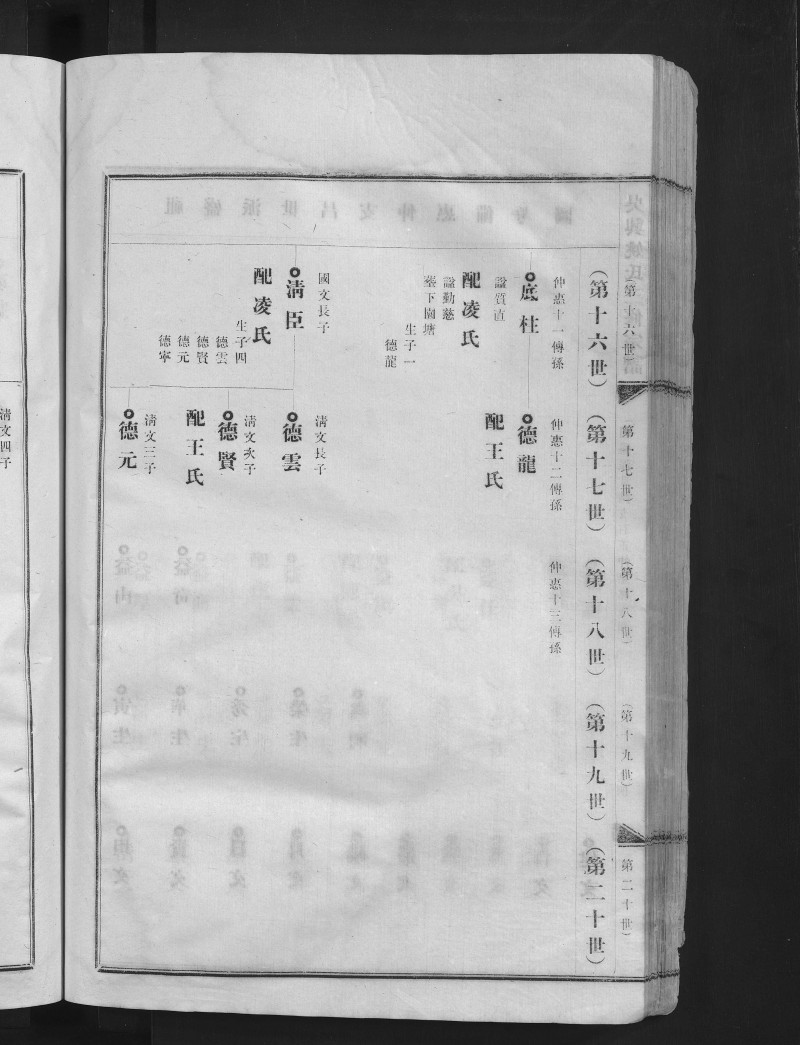 （第十六世）
（第十七世）
（第十八世）
（第十九世）
（第二十世）
（第十六世）
（第十七世）
（第十八世）
（第十九世）
（第二十世）
仲惠十一傳孫
底柱
諡質直
配凌氏
諡勤慈
葬下園塘
生子一
德龍
國文長子
淸臣
配凌氏
生子四
德雲
德賢
德元
德寧
仲惠十二傳孫
德龍
配王氏
淸文長子
德雲
淸文次子
德賢
配王氏
淸文三子
德元
仲惠十三傳孫
淸文四子